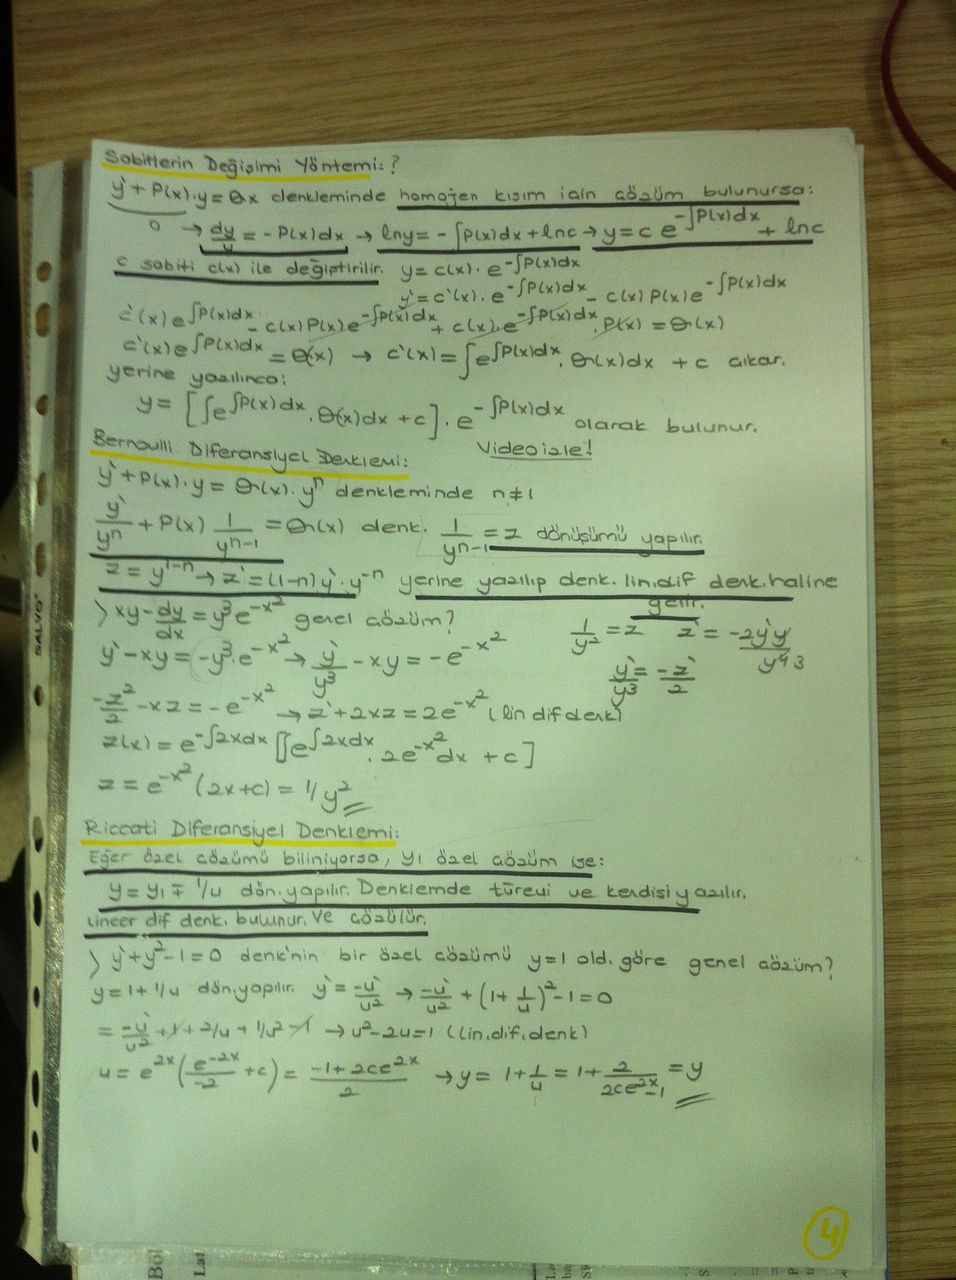 Sabitlerin Değişimi Yöntemi: ?
y' + P(x).y = Qx denkleminde homojen kısım için çözüm bulunursa:
0 → dy/y = -P(x)dx → lny = -∫P(x)dx + lnc → y = c e^(-∫P(x)dx) + lnc
c sabiti c(x) ile değiştirilir. y = c(x). e^(-∫P(x)dx)
y' = c'(x). e^(-∫P(x)dx) - c(x) P(x) e^(-∫P(x)dx)
c'(x) e^(∫P(x)dx) - c(x) P(x) e^(-∫P(x)dx) + c(x). e^(-∫P(x)dx) . P(x) = Q(x)
c'(x) e^(∫P(x)dx) = Q(x) → c'(x) = ∫e^(∫P(x)dx) . Q(x)dx + c çıkar.
yerine yazılınca:
y = [∫e^(∫P(x)dx) . Q(x)dx + c] . e^(-∫P(x)dx) olarak bulunur.
Video izle!
Bernoulli Diferansiyel Denklemi:
y' + P(x).y = Q(x). y^n denkleminde n ≠ 1
y'/y^n + P(x) 1/y^(n-1) = Q(x) denk. 1/y^(n-1) = z dönüşümü yapılır.
z = y^(1-n) → z' = (1-n) y'. y^(-n) yerine yazılıp denk. lin. dif denk. haline
gelir.
> xy - dy/dx = y^3 e^(-x^2) genel çözüm? 1/y^2 = z z' = -2y'y/y^4 3
y' - xy = -y^3. e^(-x^2) → y'/y^3 - xy = -e^(-x^2) y'/y^3 = -z'/2
-z'/2 - xz = -e^(-x^2) → z' + 2xz = 2e^(-x^2) (lin dif denk)
z(x) = e^(-∫2xdx) [∫e^(∫2xdx) . 2e^(-x^2) dx + c]
z = e^(-x^2) (2x+c) = 1/y^2
Riccati Diferansiyel Denklemi:
Eğer özel çözümü biliniyorsa, y1 özel çözüm ise:
y = y1 ∓ 1/u dön. yapılır. Denklemde türevi ve kendisi yazılır.
Lineer dif denk. bulunur. Ve çözülür.
> y' + y^2 - 1 = 0 denk'nin bir özel çözümü y=1 old. göre genel çözüm?
y = 1 + 1/u dön. yapılır. y' = -u'/u^2 → -u'/u^2 + (1 + 1/u)^2 - 1 = 0
= -u'/u^2 + 1 + 2/u + 1/u^2 - 1 → u' - 2u = 1 (lin. dif. denk)
u = e^(2x) (e^(-2x)/-2 + c) = (-1 + 2ce^(2x))/2 → y = 1 + 1/u = 1 + 2/(2ce^(2x) - 1) = y
4
SALVO
Böl